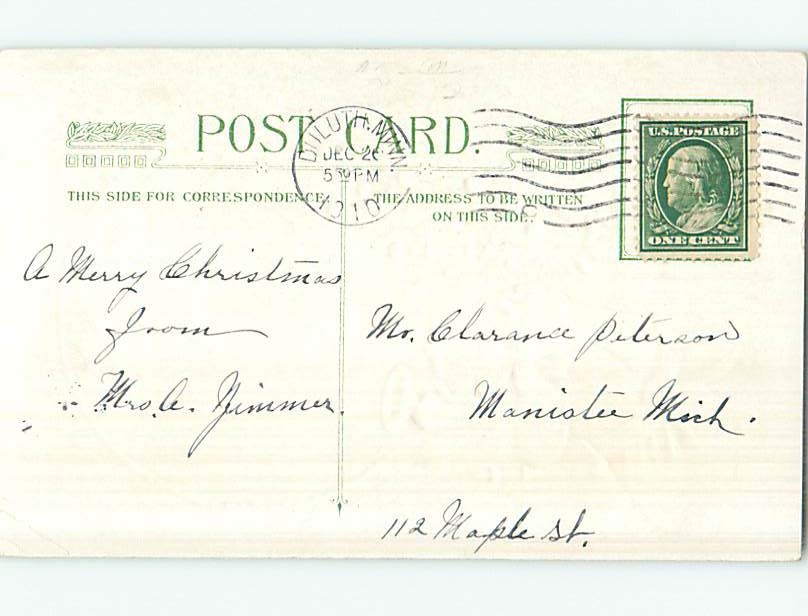 POST CARD.
DULUTH, MINN.
DEC 26
5 30 PM
1910
U.S. POSTAGE
ONE CENT
THIS SIDE FOR CORRESPONDENCE.
THE ADDRESS TO BE WRITTEN
ON THIS SIDE.
A Merry Christmas
from
Mrs. A. Zimmer.
Mr. Clarance Peterson
Manistee Mich.
112 Maple St.